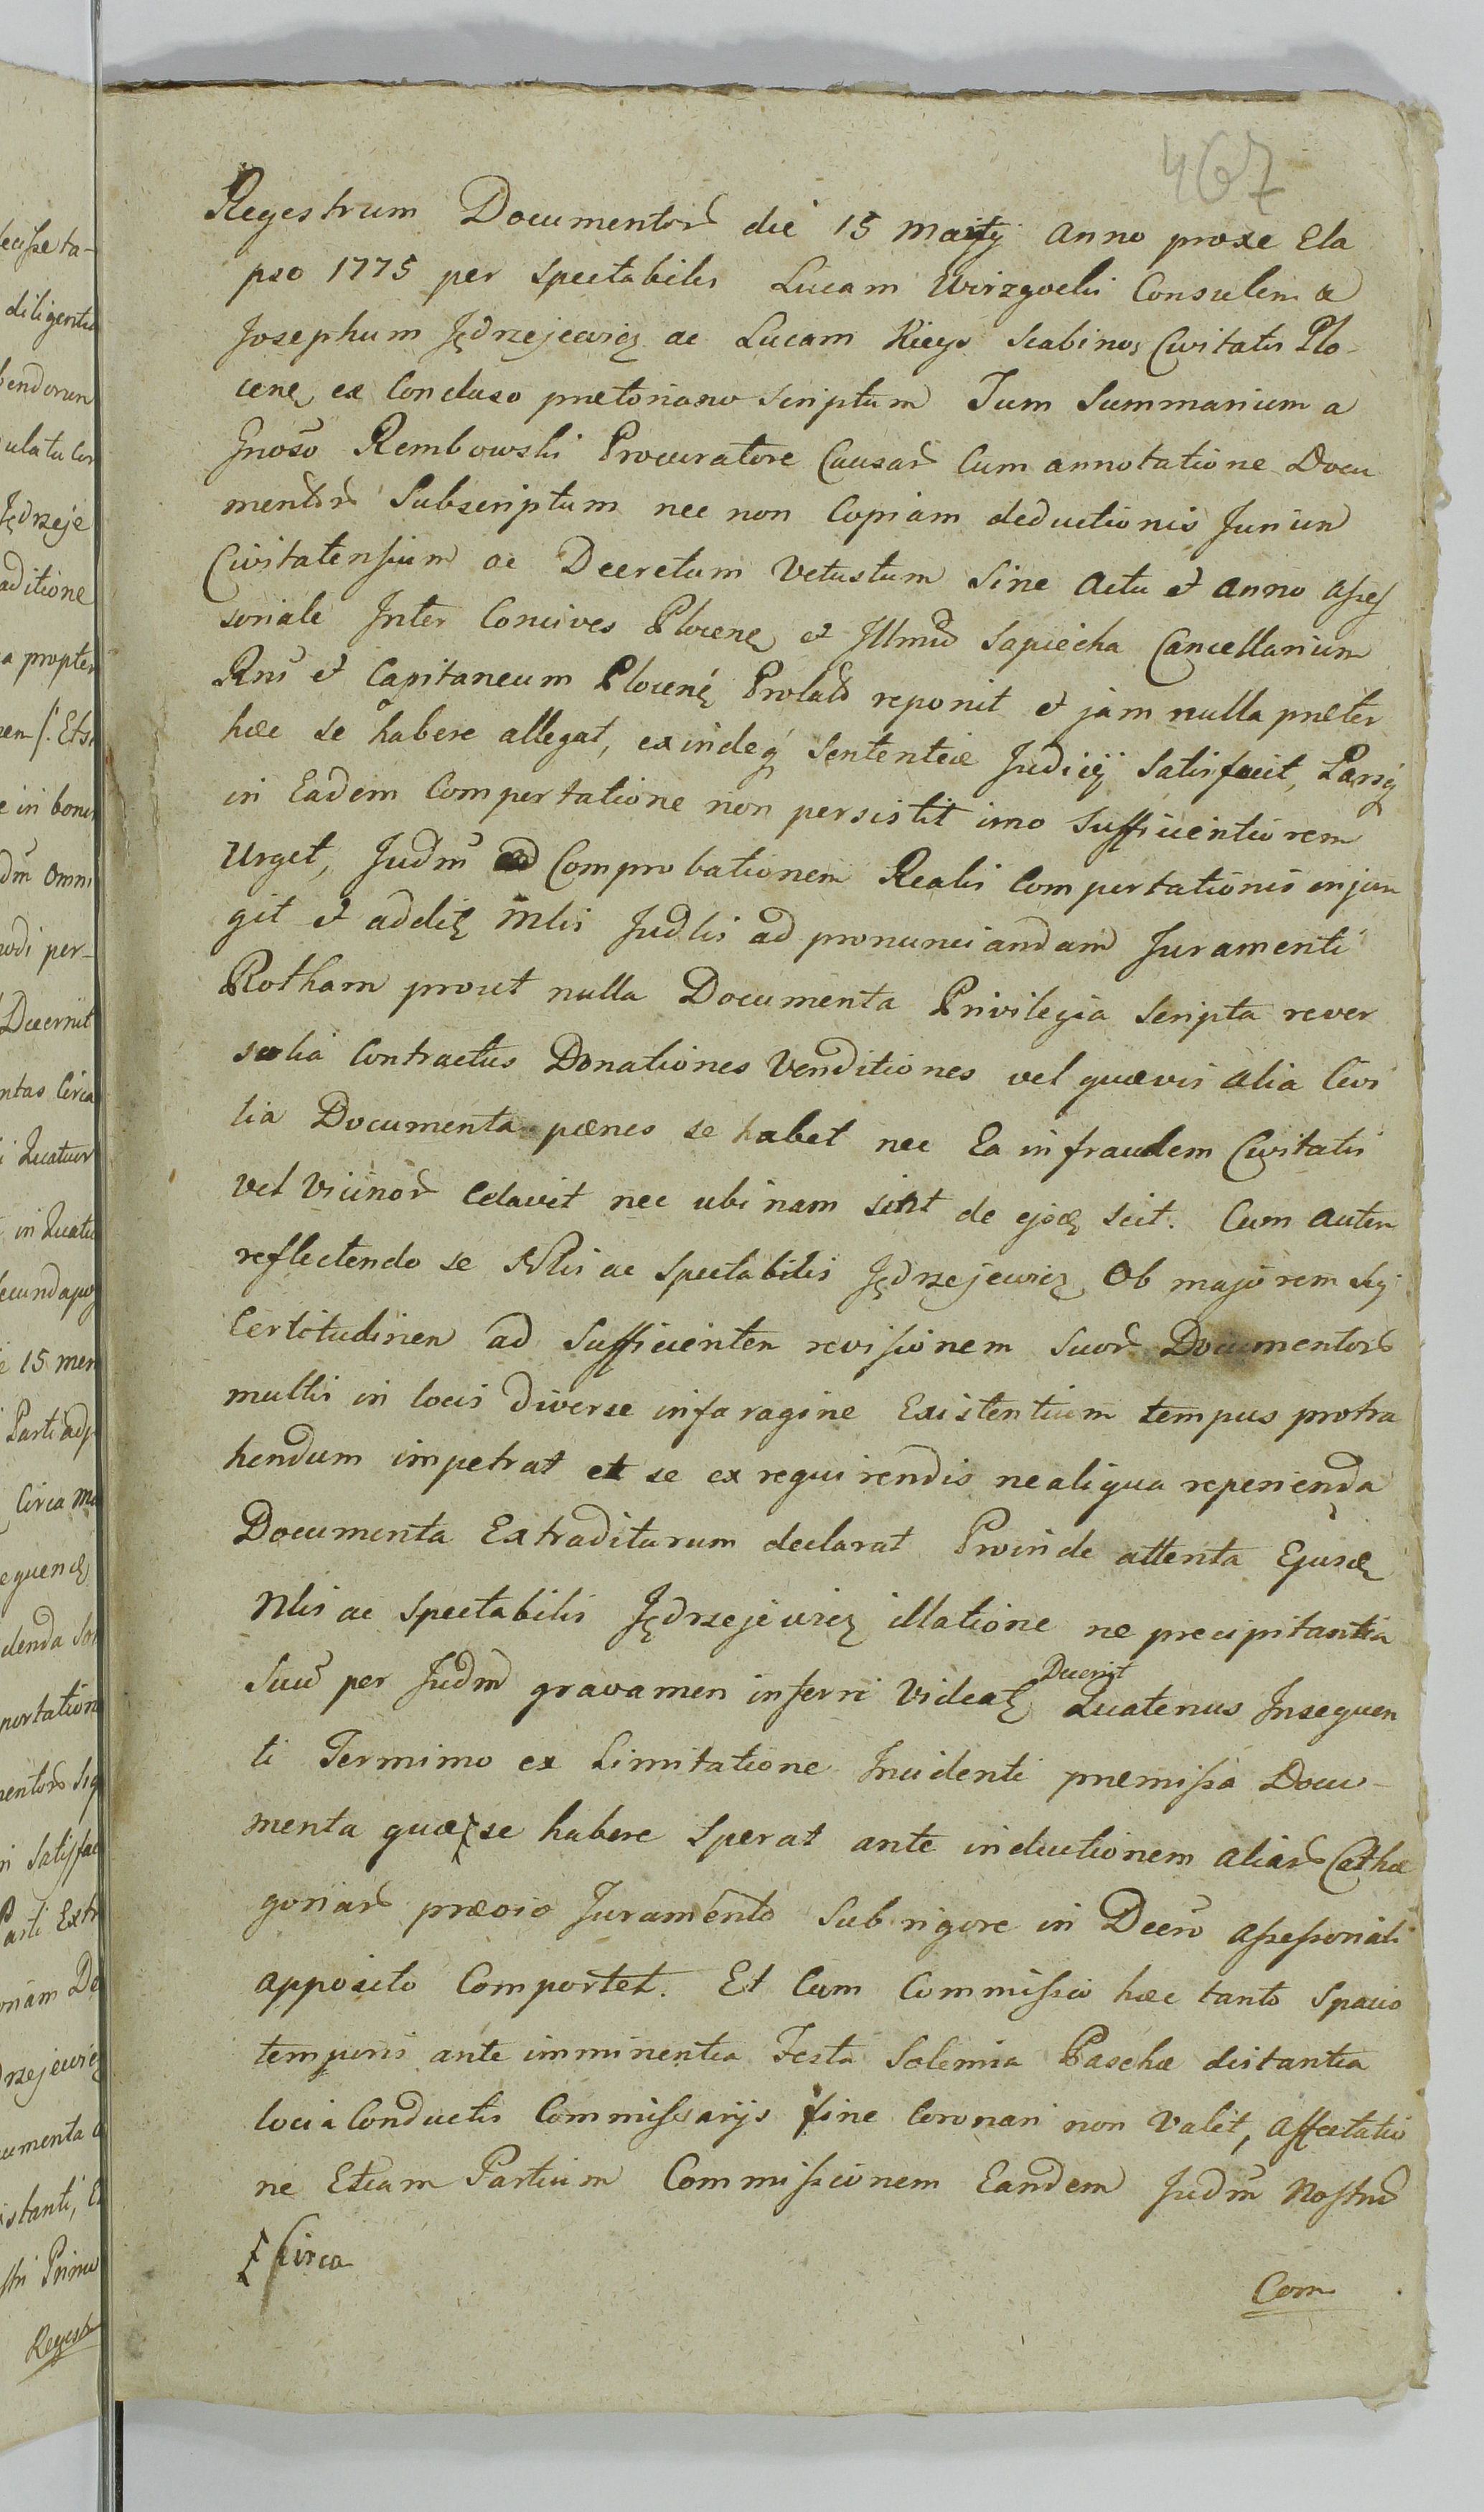 467
Regestrum Documentor̃ die 15 Martij anno proxe Ela
pso 1775 per Spectabiles Lucam Wirzgoelii Consulem &
Josephum Jędrzejewicz ac Lucam Kieys Scabinos Civitatis Plo-
cen̄ ex Concluso prætoriano Scriptum Tum Summarium a
Gnoso Rembowski Procuratore Causar̃ Cum annotatione Docu
mentor̃ Subscriptum nec non Copiam deductionis Jurium
Civitatensium ac Decretum Vetustum Sine Actu et anno asses
soriale Inter Concives Plocen̄ et Illmũ Sapiecha Cancellarium
Rni et Capitaneum Plocen̄ Prolatũ reponit et jam nulla præter
hæc se habere allegat, exindeq́ Sententiæ Judicij Satisfecit, Parsq́
in Eadem Comportatione non persistit imo Sufficientiorem
Urget, Judm̃ ad Comprobationem Realis Comportationis injun
git et addit Mlis Judlis ad pronunciandam Juramenti
Rotham prout nulla Documenta Privilegia Scripta rever
salia Contractus Donationes Venditiones vel quævis alia Civi
lia Documenta pænes se habet nec Ea in fraudem Civitatis
vel vicinor̃ Celavit nec ubi nam sint de ejsd scit. Cum autem
reflectendo se Nlis ac Spectabilis Jędrzejewicz Ob majorem sui
Certitudinem ad Sufficientem revisionem Suor̃ Documentor̃
multis in locis diverse infaragine Existentium tempus protra
hendum impetrat et se ex requirendis ne aliqua reperienda
Documenta Extraditurum declarat Proinde attenta Ejusd
Nlis ac Spectabilis Jędrzejewicz illatione ne precipitantia
Suũ per Judm̃ gravamen inferri Videat Decernit Quatenus Insequen
ti Termino ex Limitatione Incidenti præmissa Docu-
menta quæ se habere Sperat ante inductionem aliar̃ Cathe
goriar̃ prævio Juramento Sub rigore in Decro assessoriali
apposito Comportet. Et Cum Commissio hæc tanto Spacio
temporis ante imminentia Festa Solemia Paschæ distantia
loci a Conductis Commissarijs fine Coronari non Valet, affectatio
ne Etiam Partium Commissionem Eandem Judm̃ Nostrũ
Circa
Com